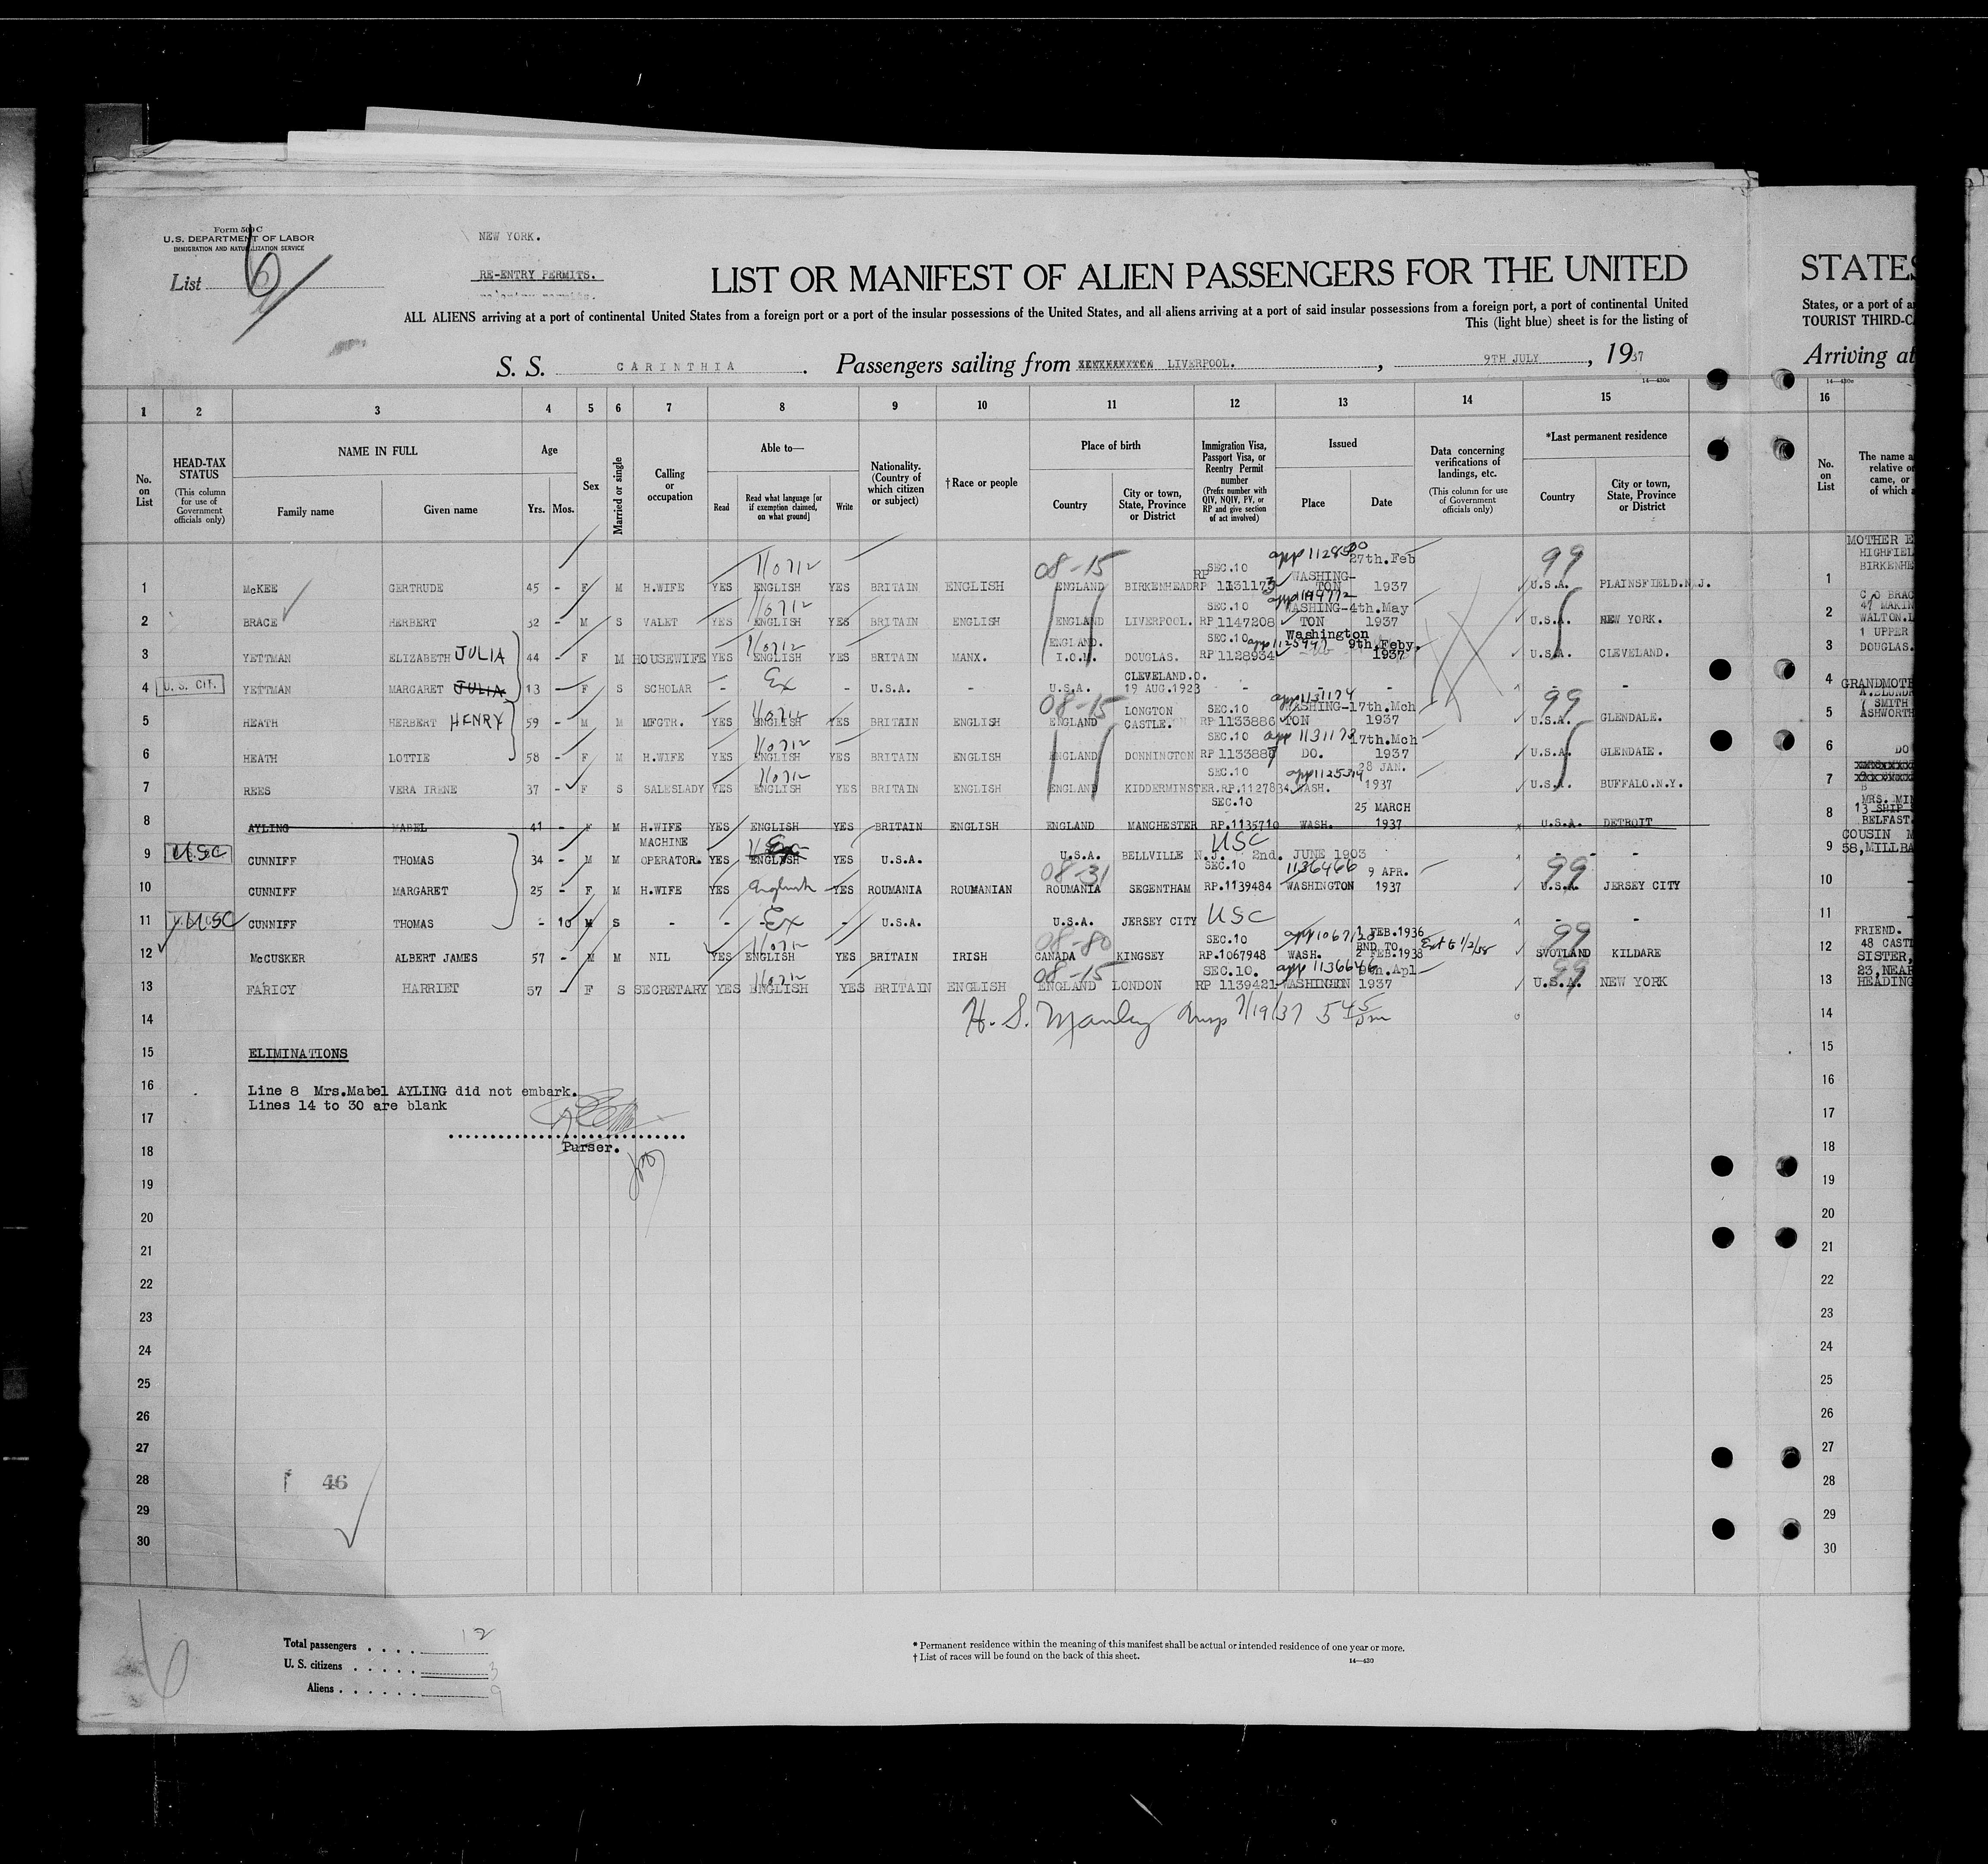 Form 500 C
U.S. DEPARTMENT OF LABOR
IMMIGRATION AND NATURALIZATION SERVICE
List 6
NEW YORK.
RE-ENTRY PERMITS.
LIST OR MANIFEST OF ALIEN PASSENGERS FOR THE UNITED
ALL ALIENS arriving at a port of continental United States from a foreign port or a port of the insular possessions of the United States, and all aliens arriving at a port of said insular possessions from a foreign port, a port of continental United
This (light blue) sheet is for the listing of
S. S. CARINTHIA. Passengers sailing from LIVERPOOL., 9TH JULY, 1937
14—430c
1 2 3 4 5 6 7 8 9 10 11 12 13 14 15
No. on List
HEAD-TAX STATUS
(This column for use of Government officials only)
NAME IN FULL
Family name Given name
Age
Yrs. Mos.
Sex
Married or single
Calling or occupation
Able to—
Read Read what language [or if exemption claimed, on what ground] Write
Nationality. (Country of which citizen or subject)
† Race or people
Place of birth
Country City or town, State, Province or District
Immigration Visa, Passport Visa, or Reentry Permit number
(Prefix number with QIV, NQIV, PV, or RP and give section of act involved)
Issued
Place Date
Data concerning verifications of landings, etc.
(This column for use of Government officials only)
*Last permanent residence
Country City or town, State, Province or District
1 McKEE GERTRUDE 45 - F M H.WIFE YES ENGLISH YES BRITAIN ENGLISH 08-15 ENGLAND BIRKENHEAD SEC.10 RP 1131173 WASHING-TON 27th.Feb 1937 99 U.S.A. PLAINSFIELD.N.J.
2 BRACE HERBERT 32 - M S VALET YES ENGLISH YES BRITAIN ENGLISH ENGLAND LIVERPOOL. SEC.10 RP 1147208 WASHING-TON 4th.May 1937 U.S.A. NEW YORK.
3 YETTMAN ELIZABETH JULIA 44 - F M HOUSEWIFE YES ENGLISH YES BRITAIN MANX. ENGLAND. I.O.M. DOUGLAS. SEC.10 RP 1128934 Washington 9th.Feby. 1937 U.S.A. CLEVELAND.
4 U. S. CIT. YETTMAN MARGARET JULIA 13 - F S SCHOLAR - Ex - U.S.A. - U.S.A. CLEVELAND.O. 19 AUG.1923 - - - - -
5 HEATH HERBERT HENRY 59 - M M MFGTR. YES ENGLISH YES BRITAIN ENGLISH 08-15 ENGLAND LONGTON CASTLE. SEC.10 RP 1133886 app 1131174 WASHING-TON 17th.Mch 1937 99 U.S.A. GLENDALE.
6 HEATH LOTTIE 58 - F M H.WIFE YES ENGLISH YES BRITAIN ENGLISH ENGLAND DONNINGTON SEC.10 RP 1133887 app 1131173 DO. 17th.Mch 1937 U.S.A. GLENDALE.
7 REES VERA IRENE 37 - F S SALESLADY YES ENGLISH YES BRITAIN ENGLISH ENGLAND KIDDERMINSTER. SEC.10 RP.1127834 WASH. 28 JAN. 1937 U.S.A. BUFFALO.N.Y.
8 AYLING MABEL 41 - F M H.WIFE YES ENGLISH YES BRITAIN ENGLISH ENGLAND MANCHESTER SEC.10 RP.1135710 WASH. 25 MARCH 1937 U.S.A. DETROIT
9 USC CUNNIFF THOMAS 34 - M M MACHINE OPERATOR. YES ENGLISH YES U.S.A. U.S.A. BELLVILLE N.J. USC 2nd. JUNE 1903 - - -
10 CUNNIFF MARGARET 25 - F M H.WIFE YES English YES ROUMANIA ROUMANIAN 08-31 ROUMANIA SEGENTHAM SEC.10 RP.1139484 1136466 WASHINGTON 9 APR. 1937 99 U.S.A. JERSEY CITY
11 USC CUNNIFF THOMAS - 10 M S - - Ex - U.S.A. U.S.A. JERSEY CITY USC - -
12 McCUSKER ALBERT JAMES 57 - M M NIL YES ENGLISH YES BRITAIN IRISH 08-80 CANADA KINGSEY SEC.10 RP.1067948 WASH. 1 FEB.1936 END TO. 2 FEB.1938 Ext to 1/2/38 99 SVOTLAND KILDARE
13 FARICY HARRIET 57 - F S SECRETARY YES ENGLISH YES BRITAIN ENGLISH 08-15 ENGLAND LONDON SEC.10. RP 1139421 app 1136646 WASHINGTON 1937 99 U.S.A. NEW YORK
14 H. S. Manley Insp 7/19/37 5 45 pm
15 ELIMINATIONS
16 Line 8 Mrs.Mabel AYLING did not embark.
Lines 14 to 30 are blank
17
18 Purser.
19
20
21
22
23
24
25
26
27
28 46
29
30
6
Total passengers . . . . 12
U. S. citizens . . . . . 3
Aliens . . . . . . 9
* Permanent residence within the meaning of this manifest shall be actual or intended residence of one year or more.
† List of races will be found on the back of this sheet.
14—430
STATES
States, or a port of
TOURIST THIRD-C
Arriving at
14—430c
16
No. on List
The name a
relative o
came, or
of which
MOTHER E
HIGHFIEL
BIRKENHE
1
C/O BRAC
2 47 MAKIN
WALTON.L
1 UPPER
3 DOUGLAS.
4 GRANDMOTH
7 SMITH
5 ASHWORTH
6 DO
7
MRS. MI
8 13 SHIP
BELFAST.
COUSIN M
9 58,MILLBA
10
11
FRIEND.
12 48 CAST
SISTER,
23,NEAR
13 HEADING
14
15
16
17
18
19
20
21
22
23
24
25
26
27
28
29
30